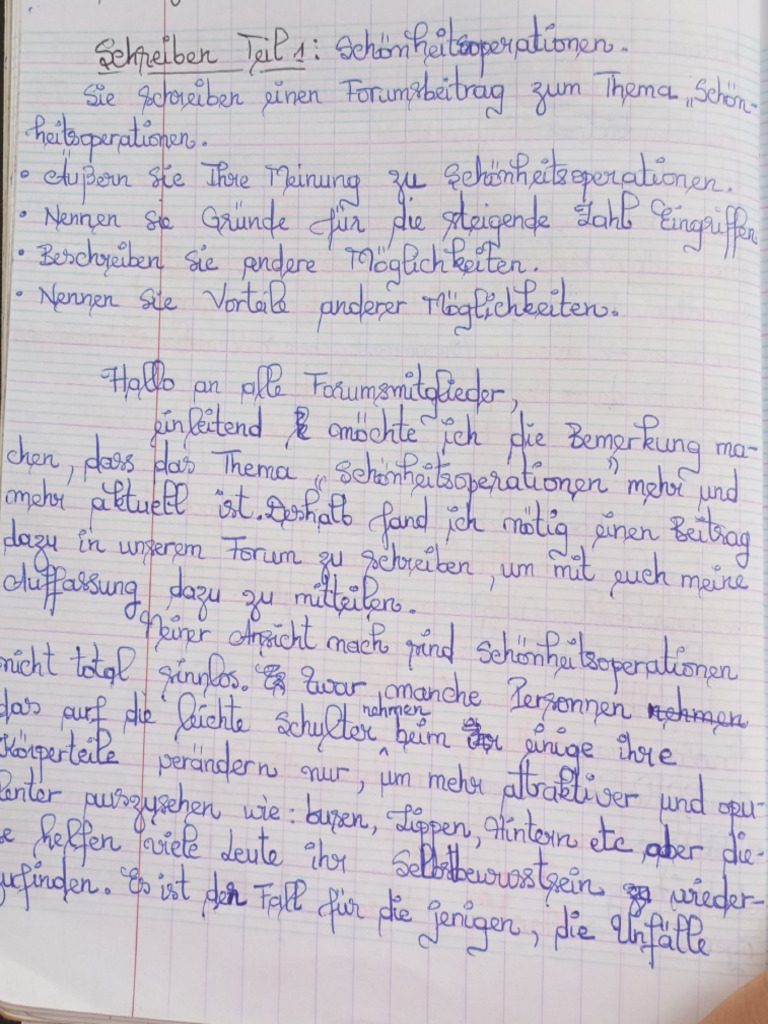 Schreiben Teil 1: Schönheitsoperationen.
Sie schreiben einen Forumsbeitrag zum Thema „Schön-
heitsoperationen.
• Äußern Sie Ihre Meinung zu Schönheitsoperationen.
• Nennen Sie Gründe für die steigende Zahl Eingriffen
• Beschreiben Sie andere Möglichkeiten.
• Nennen Sie Vorteile anderer Möglichkeiten.
Hallo an alle Forumsmitglieder,
einleitend möchte ich die Bemerkung ma-
chen, dass das Thema „Schönheitsoperationen" mehr und
mehr aktuell ist. Deshalb fand ich nötig einen Beitrag
dazu in unserem Forum zu schreiben, um mit euch meine
Auffassung dazu zu mitteilen.
Meiner Ansicht nach sind Schönheitsoperationen
nicht total sinnlos. Zwar, manche Personnen
das auf die leichte Schulter nehmen beim einige ihre
Körperteile verändern nur, um mehr attraktiver und opu-
lenter auszusehen wie: busen, Lippen, Hintern etc, aber die-
se helfen viele Leute ihr Selbstbewusstsein wieder-
zufinden. Es ist der Fall für die jenigen, die Unfälle